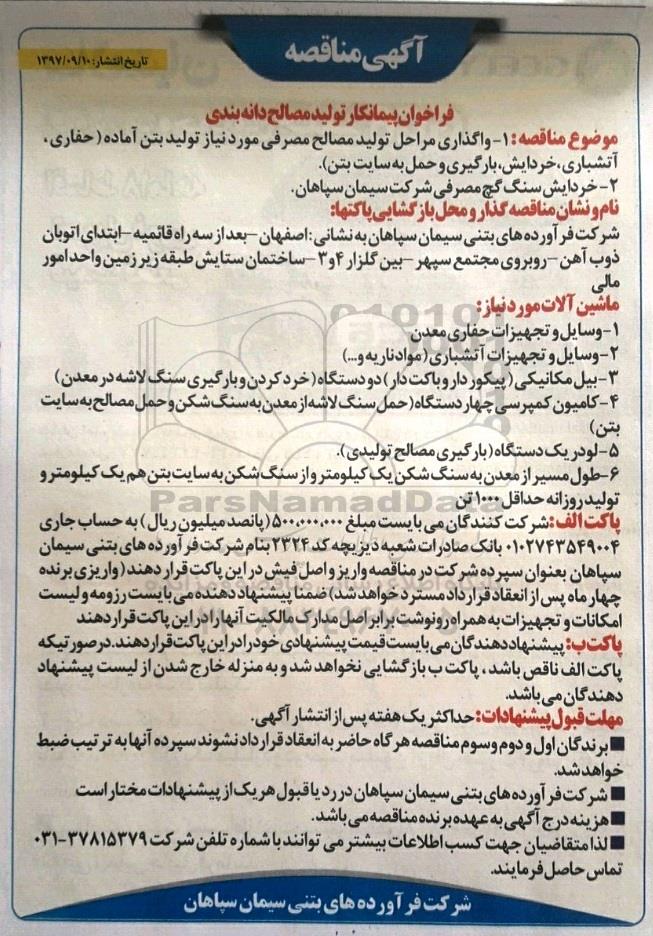 آگهی مناقصه
تاریخ انتشار: ۱۳۹۷/۰۹/۱۰
فراخوان پیمانکار تولید مصالح دانه بندی
موضوع مناقصه: ۱- واگذاری مراحل تولید مصالح مصرفی مورد نیاز تولید بتن آماده (حفاری،
آتشباری، خردایش، بارگیری و حمل به سایت بتن).
۲- خردایش سنگ گچ مصرفی شرکت سیمان سپاهان.
نام و نشان مناقصه گذار و محل بازگشایی پاکتها:
شرکت فرآورده های بتنی سیمان سپاهان به نشانی: اصفهان - بعد از سه راه قائمیه - ابتدای اتوبان
ذوب آهن - روبروی مجتمع سپهر - بین گلزار ۴ و ۳ - ساختمان ستایش طبقه زیر زمین واحد امور
مالی
ماشین آلات مورد نیاز:
۱- وسایل و تجهیزات حفاری معدن
۲- وسایل و تجهیزات آتشباری (مواد ناریه و...)
۳- بیل مکانیکی (پیکور دار و باکت دار) دو دستگاه (خرد کردن و بارگیری سنگ لاشه در معدن)
۴- کامیون کمپرسی چهار دستگاه (حمل سنگ لاشه از معدن به سنگ شکن و حمل مصالح به سایت
بتن)
۵- لودر یک دستگاه (بارگیری مصالح تولیدی).
۶- طول مسیر از معدن به سنگ شکن یک کیلومتر و از سنگ شکن به سایت بتن هم یک کیلومتر و
تولید روزانه حداقل ۱۰۰۰ تن
ParsNamadData
پاکت الف: شرکت کنندگان می بایست مبلغ ۵۰۰،۰۰۰،۰۰۰ (پانصد میلیون ریال) به حساب جاری
۰۱۰۲۷۴۳۵۴۹۰۰۴ بانک صادرات شعبه دیزیچه کد ۲۳۲۴ بنام شرکت فرآورده های بتنی سیمان
سپاهان بعنوان سپرده شرکت در مناقصه واریز و اصل فیش در این پاکت قرار دهند (واریزی برنده
چهار ماه پس از انعقاد قرارداد مسترد خواهد شد) ضمنا پیشنهاد دهنده می بایست رزومه و لیست
امکانات و تجهیزات به همراه رونوشت برابر اصل مدارک مالکیت آنها را در این پاکت قرار دهند
پاکت ب: پیشنهاد دهندگان می بایست قیمت پیشنهادی خود را در این پاکت قرار دهند. در صورتیکه
پاکت الف ناقص باشد، پاکت ب بازگشایی نخواهد شد و به منزله خارج شدن از لیست پیشنهاد
دهندگان می باشد.
مهلت قبول پیشنهادات: حداکثر یک هفته پس از انتشار آگهی.
■ برندگان اول و دوم و سوم مناقصه هر گاه حاضر به انعقاد قرارداد نشوند سپرده آنها به ترتیب ضبط
خواهد شد.
■ شرکت فرآورده های بتنی سیمان سپاهان در رد یا قبول هر یک از پیشنهادات مختار است
■ هزینه درج آگهی به عهده برنده مناقصه می باشد.
■ لذا متقاضیان جهت کسب اطلاعات بیشتر می توانند با شماره تلفن شرکت ۳۷۸۱۵۳۷۹-۰۳۱
تماس حاصل فرمایند.
شرکت فرآورده های بتنی سیمان سپاهان